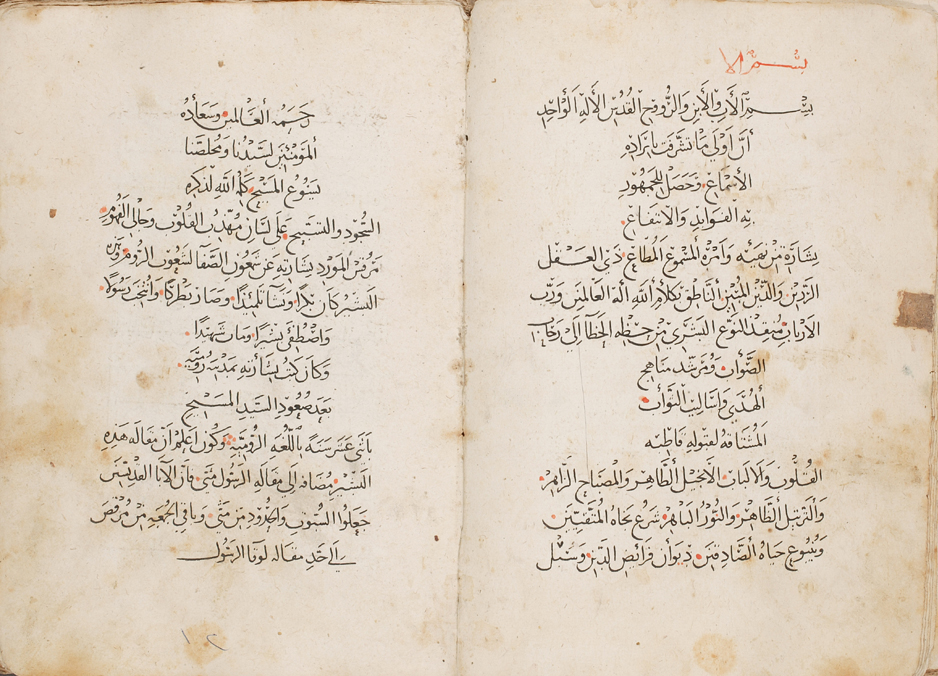 بسم الا
بسم الاب والابن والروح القدس الاله الواحد
ان اولي ما تشرفت بايراده
الاسماع وحصل للجمهور
به الفوايد والانتفاع
بشارة من نهيه وامره المسموع المطاع ذى العقل
الرزين والدين المبين الناطق بكلام الله اله العالمين ورب
الارباب منقد النوع البشري من خطه الخطا الي رحاب
الصواب ومرشد مناهج
الهدي واساليب الثواب
المشتاقه لقبوله قاطبه
القلوب والالباب الانجيل الطاهر والمصباح الزاهر
والترتيل الظاهر والنور الباهر شرع نجاه المتقين
وينبوع حياه الصادقين ديوان فرائض الدين وسبل
رحمه العالمين وسعاده
المومنين لسيدنا ومخلصنا
يسوع المسيح كلمة الله لذكره
السجود والتسبيح على لسان مهذب القلوب وجالي الفهوم
مرقس المورد بشارته عن شمعون الصفا لشعوب الروم وهذا
البشير كان بكرا ونشا تلميذا وصار بطركا وانتخب رسولا
واصطفى بشيرا ومات شهيدا
وكان كتب بشارته بمدينه روميه
بعد صعود السيد المسيح
باثنى عشر سنه باللغه الروميه وكون اعلم ان مقاله هذه
البشير مضافه الي مقاله الرسول متى فان الابا القديسين
جعلوا السبوت والاحدود من متى وباقي الجمعه من مرقص
الي احد مقاله لوقا الرسول